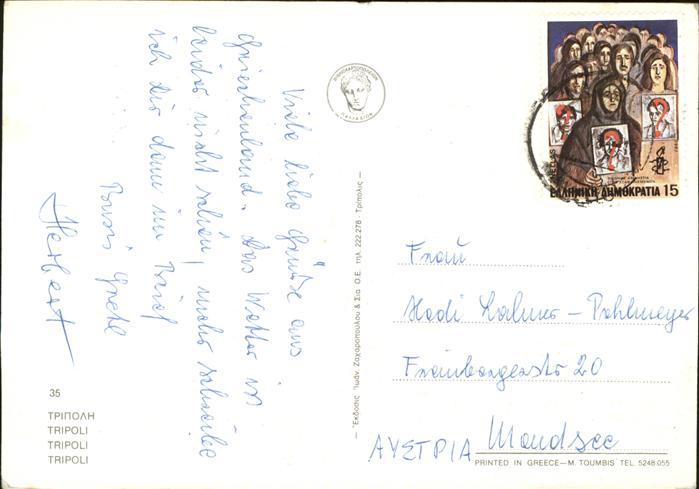 Viele liebe Grüße aus
Griechenland. Das Wetter ist
leider nicht schön, mehr schreibe
ich dir dann im Brief
Bussi
Herbert
35
ΤΡΙΠΟΛΗ
TRIPOLI
TRIPOLI
TRIPOLI
— Ἔκδοσις Ἰωάν. Ζαχαροπούλου & Σια Ο.Ε. τηλ. 222.278 · Τρίπολις —
ΕΛΛΗΝΙΚΗ ΔΗΜΟΚΡΑΤΙΑ 15
Frau
Hedi - Pohlmeyer
20
ΑΥΣΤΡΙΑ Mondsee
PRINTED IN GREECE—M. TOUMBIS TEL. 5248.055